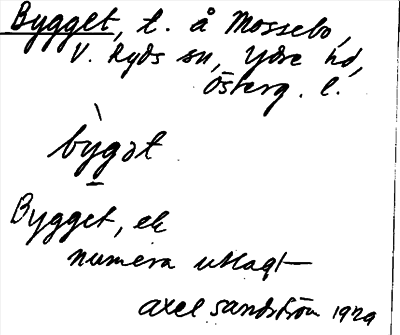 Bygget, t. å Mossebo,
V. Ryds sn, Ydre hd,
Österg. l.
bỳgət
Bygget, ek
numera utlagt
Axel Sandström 1929